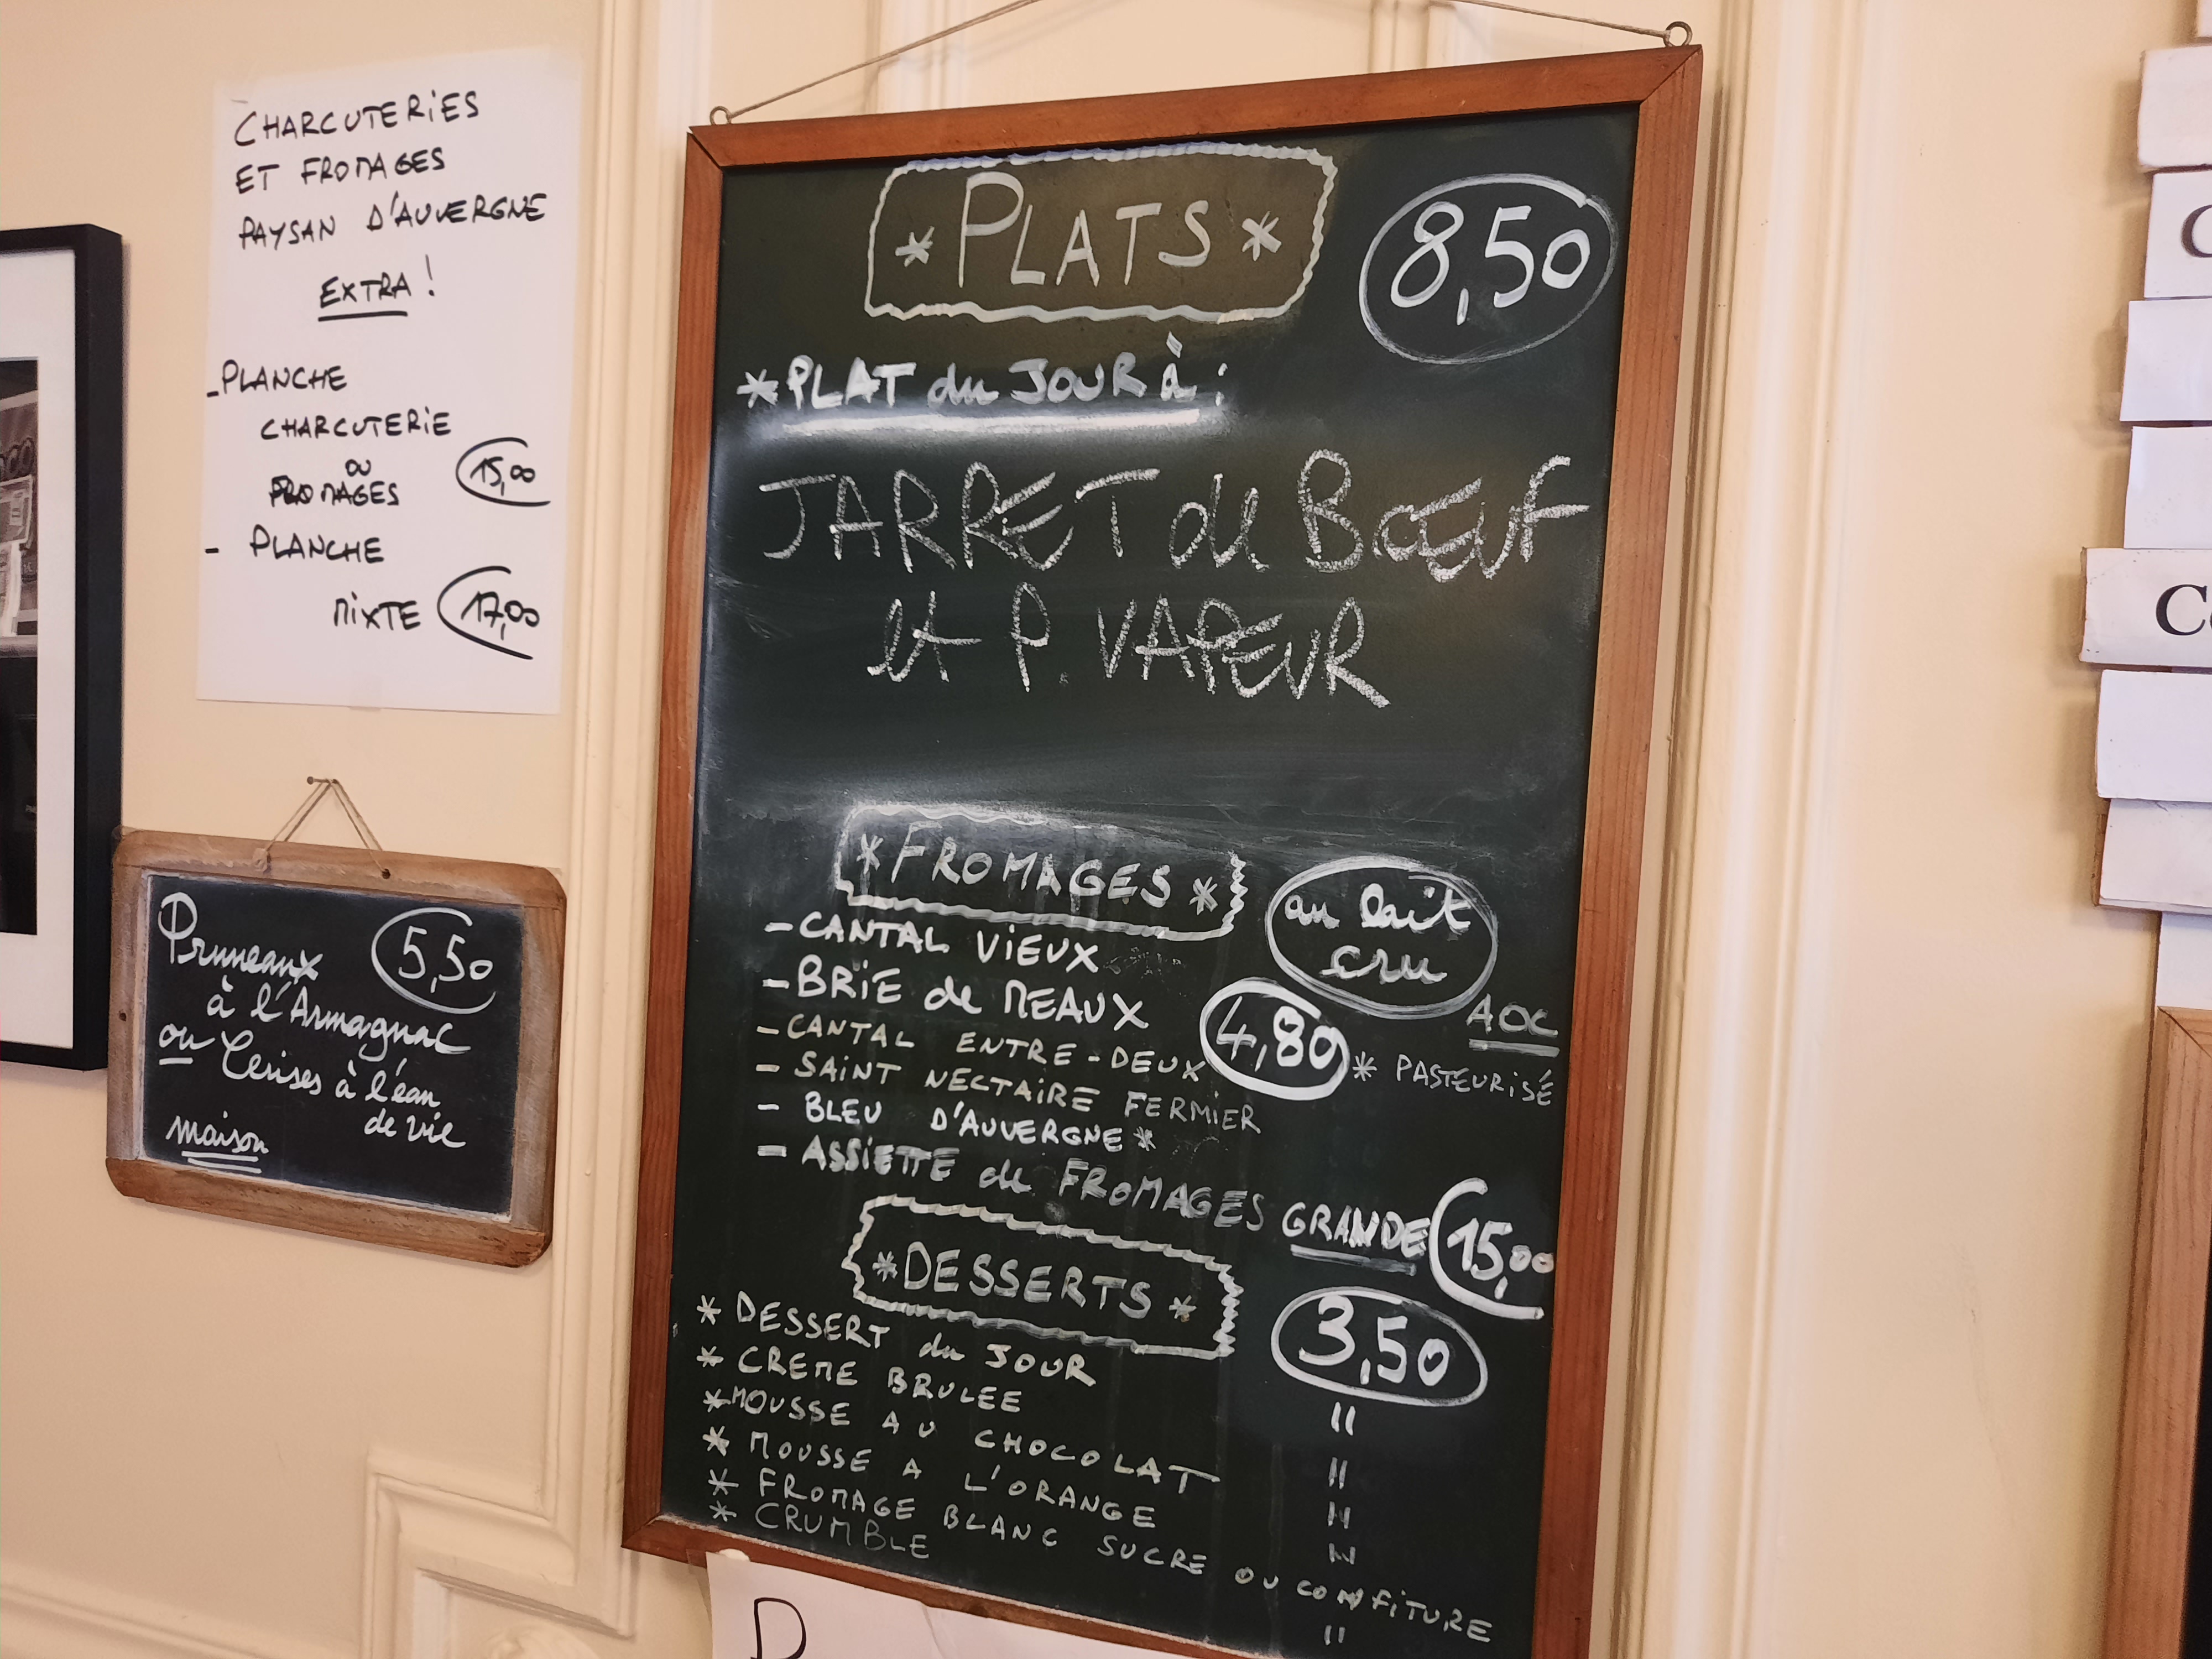 CHARCUTERIES
ET FROMAGES
PAYSAN D'AUVERGNE
EXTRA !
- PLANCHE
CHARCUTERIE
ou
FROMAGES 15,00
- PLANCHE
MIXTE 17,00
Pruneaux 5,50
à l'Armagnac
ou Cerises à l'eau
de vie
maison
* PLATS * 8,50
* PLAT du JOUR à :
JARRET de BŒUF
et P. VAPEUR
* FROMAGES * au lait
cru
- CANTAL VIEUX
- BRIE de MEAUX AOC
- CANTAL ENTRE-DEUX 4,80 * PASTEURISÉ
- SAINT NECTAIRE FERMIER
- BLEU D'AUVERGNE *
- ASSIETTE de FROMAGES GRANDE 15,00
* DESSERTS *
* DESSERT du JOUR 3,50
* CREME BRULEE "
* MOUSSE AU CHOCOLAT "
* MOUSSE A L'ORANGE "
* FROMAGE BLANC SUCRE OU CONFITURE "
* CRUMBLE "
D